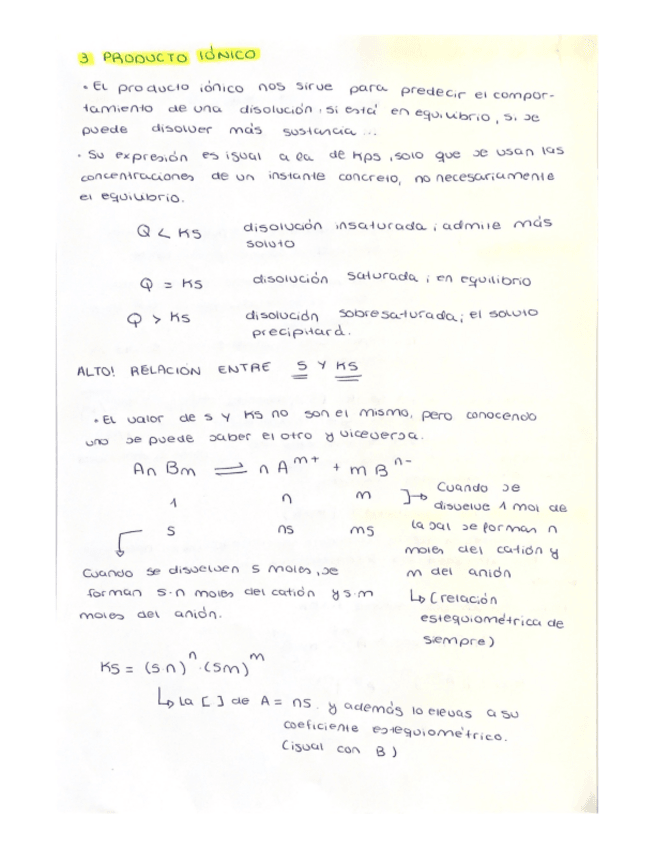 3 PRODUCTO IÓNICO
· El producto iónico nos sirve para predecir el compor-
tamiento de una disolución. si está en equilibrio, si se
puede disolver más sustancia...
· Su expresión es igual a la de Kps, solo que se usan las
concentraciones de un instante concreto, no necesariamente
el equilibrio.
Q < KS disolución insaturada; admite más
soluto
Q = KS disolución saturada; en equilibrio
Q > KS disolución sobresaturada; el soluto
precipitará.
ALTO! RELACIÓN ENTRE S Y KS
· El valor de s y KS no son el mismo, pero conociendo
uno se puede saber el otro y viceversa.
An Bm ⇌ n A^m+ + m B^n-
1 n m ]→ Cuando se
disuelve 1 mol de
S ns ms la sal se forman n
moles del catión y
Cuando se disuelven S moles, se m del anión
forman s·n moles del catión y s·m ↳ (relación
moles del anión. estequiométrica de
siempre)
KS = (s n)^n · (sm)^m
↳ la [ ] de A = ns. y además lo elevas a su
coeficiente estequiométrico.
(igual con B)